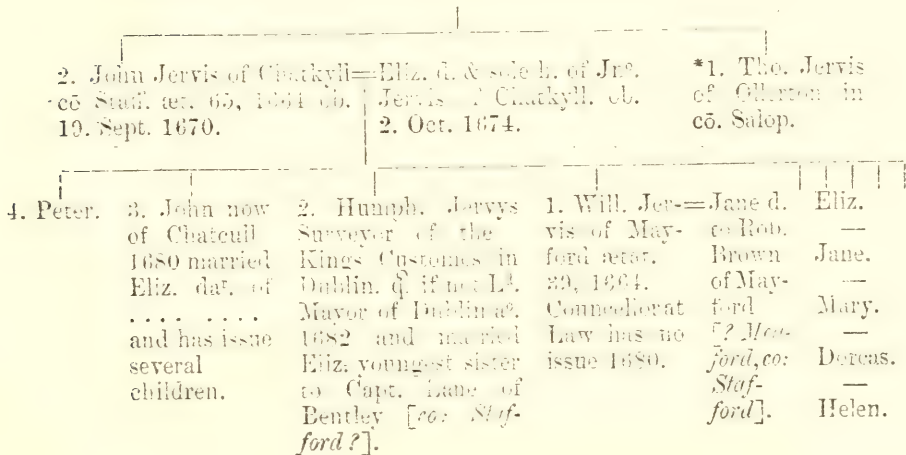 2. John Jervis of Chatkyll=Eliz. d. & sole h. of Jnº.
cō Staff. æt. 65, 1664 ob.
19. Sept. 1670.
Jervis of Chatkyll. ob.
2. Oct. 1674.
*1. Tho. Jervis
of Ollerton in
cō. Salop.
4. Peter.
3. John now
of Chatcull
1680 married
Eliz. dat. of
.... ....
and has issue
several
children.
2. Humph. Jervys
Surveyor of the
Kings Customes in
Dublin. q̃. if not Lᵈ.
Mayor of Dublin aº.
1682 and married
Eliz: youngest sister
to Capt. Lane of
Bentley [co: Staf-
ford?].
1. Will. Jer-=Jane d.
vis of May-
ford ætat.
39, 1664.
Councellor at
Law has no
issue 1680.
to Rob.
Brown
of May-
ford
[? Mea-
ford, co:
Staf-
ford].
Eliz.
—
Jane.
—
Mary.
—
Dorcas.
—
Helen.